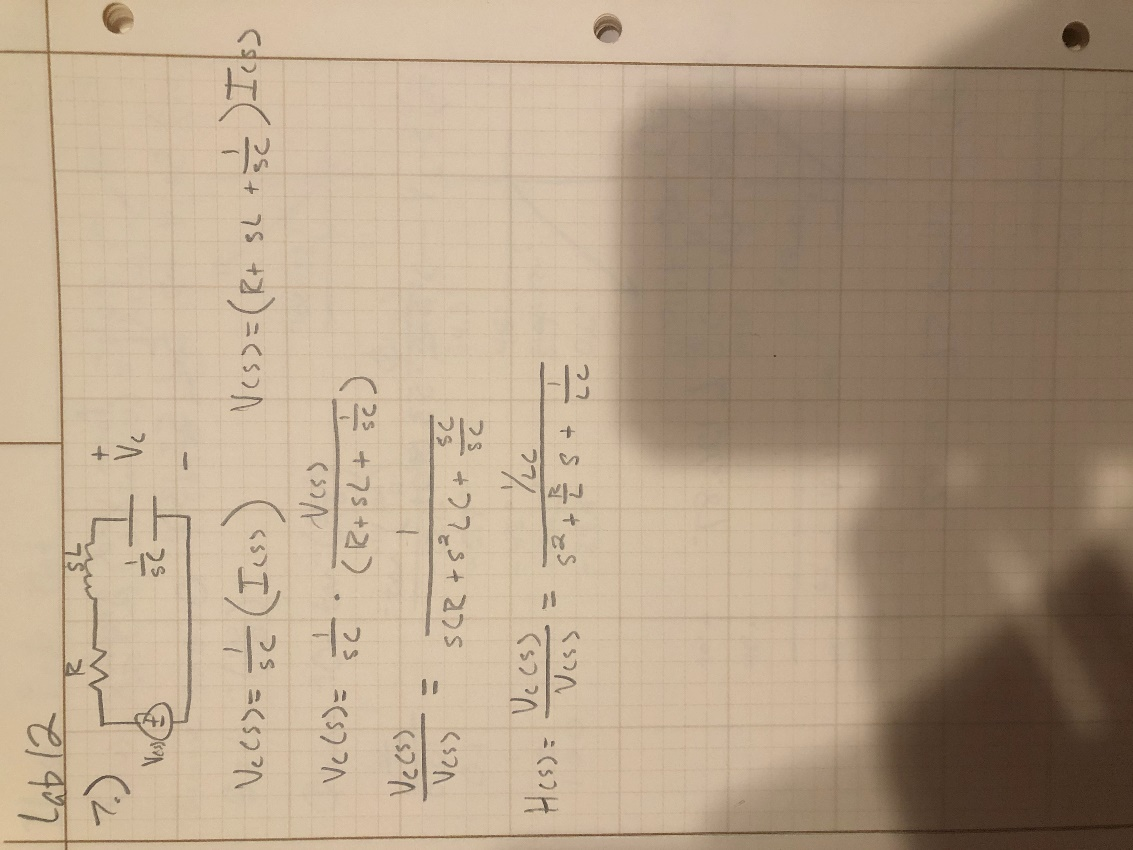 Lab 12
7.)
R sL
V(s) ± 1/sC + Vc −
Vc(s) = 1/sC (I(s)) V(s) = (R + sL + 1/sC) I(s)
Vc(s) = 1/sC · V(s)/(R + sL + 1/sC)
Vc(s)/V(s) = 1/(sCR + s²LC + sC/sC)
H(s) = Vc(s)/V(s) = 1/LC / (s² + R/L s + 1/LC)